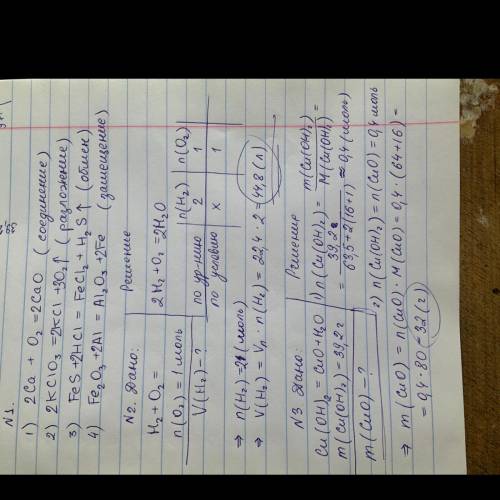 №1.
1) 2Ca + O₂ = 2CaO (соединение)
2) 2KClO₃ = 2KCl + 3O₂↑ (разложение)
3) FeS + 2HCl = FeCl₂ + H₂S↑ (обмен)
4) Fe₂O₃ + 2Al = Al₂O₃ + 2Fe (замещение)
№2. Дано:
H₂ + O₂ =
n(O₂) = 1 моль
V(H₂) - ?
Решение
2H₂ + O₂ = 2H₂O
n(H₂) n(O₂)
по ур-нию 2 1
по условию x 1
⇒ n(H₂) = 2 (моль)
⇒ V(H₂) = Vₙ · n(H₂) = 22,4 · 2 = 44,8 (л)
№3 Дано:
Cu(OH)₂ = CuO + H₂O
m(Cu(OH)₂) = 39,2 г
m(CuO) - ?
Решение
1) n(Cu(OH)₂) = m(Cu(OH)₂) / M(Cu(OH)₂) =
= 39,2 / 63,5 + 2(16+1) ≈ 0,4 (моль)
2) n(Cu(OH)₂) = n(CuO) = 0,4 моль
⇒ m(CuO) = n(CuO) · M(CuO) = 0,4 · (64+16) =
= 0,4 · 80 = 32 (г)